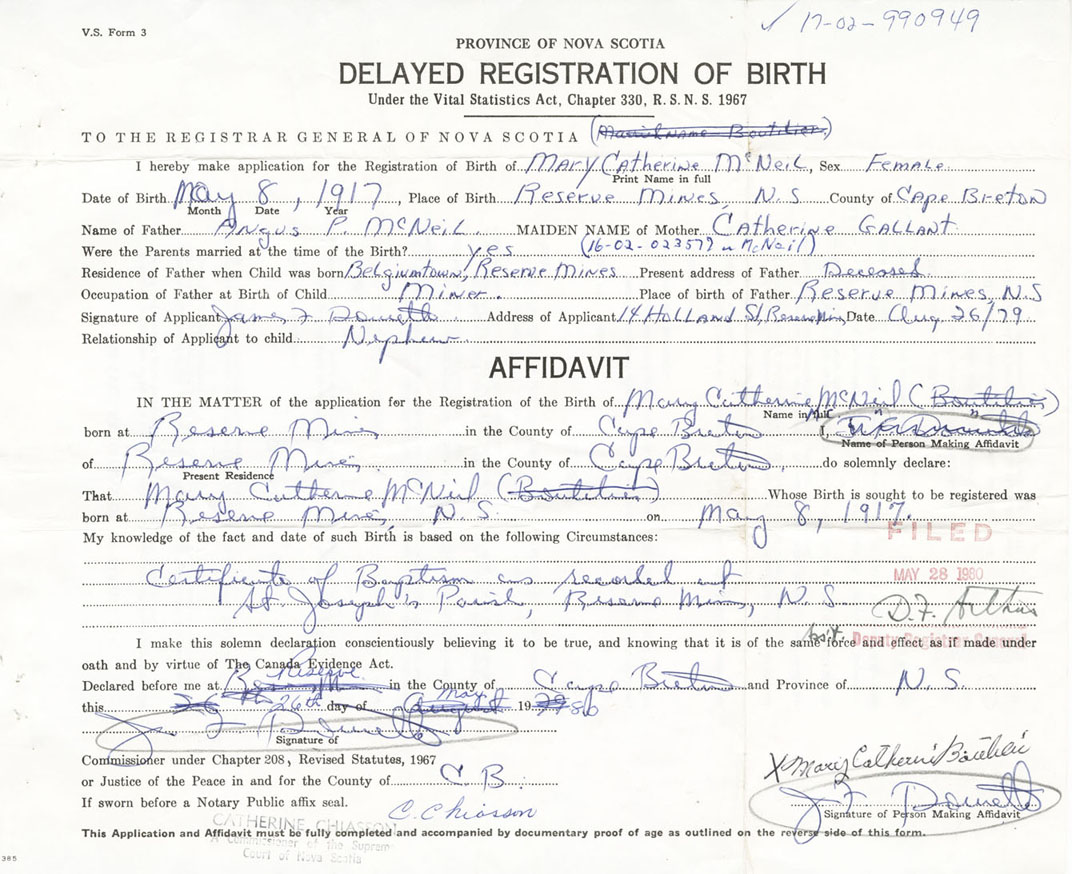 V.S. Form 3
✓ 17-02-990949
PROVINCE OF NOVA SCOTIA
DELAYED REGISTRATION OF BIRTH
Under the Vital Statistics Act, Chapter 330, R.S.N.S. 1967
TO THE REGISTRAR GENERAL OF NOVA SCOTIA (Married name Boutilier)
I hereby make application for the Registration of Birth of Mary Catherine McNeil, Sex Female
Print Name in full
Date of Birth May 8, 1917 Place of Birth Reserve Mines, N.S County of Cape Breton
Month Date Year
Name of Father Angus P. McNeil MAIDEN NAME of Mother Catherine GALLANT
Were the Parents married at the time of the Birth? yes (16-02-023577 McNeil)
Residence of Father when Child was born Belgiumtown, Reserve Mines Present address of Father Deceased
Occupation of Father at Birth of Child Miner. Place of birth of Father Reserve Mines, N.S
Signature of Applicant James F Address of Applicant 14 HOLLAND St, Date Aug 26/79
Relationship of Applicant to child Nephew
AFFIDAVIT
IN THE MATTER of the application for the Registration of the Birth of Mary Catherine McNeil (Boutilier)
Name in full
born at Reserve Mines in the County of Cape Breton I,
Name of Person Making Affidavit
of Reserve Mines in the County of Cape Breton, do solemnly declare:
Present Residence
That Mary Catherine McNeil (Boutilier) Whose Birth is sought to be registered was
born at Reserve Mines, N.S. on May 8, 1917.
My knowledge of the fact and date of such Birth is based on the following Circumstances:
FILED
Certificate of Baptism as recorded at
MAY 28 1980
St. Joseph's Parish, Reserve Mines, N.S.
D.F. Arthur
I make this solemn declaration conscientiously believing it to be true, and knowing that it is of the same force and effect as if made under
Asst. Deputy Registrar General
oath and by virtue of The Canada Evidence Act.
Declared before me at Reserve in the County of Cape Breton and Province of N.S.
this 26th day of May August 19 79 80
Signature of
Commissioner under Chapter 208, Revised Statutes, 1967
or Justice of the Peace in and for the County of C B
X Mary Catherine Boutilier
If sworn before a Notary Public affix seal. C. Chiasson
Signature of Person Making Affidavit
CATHERINE CHIASSON
This Application and Affidavit must be fully completed and accompanied by documentary proof of age as outlined on the reverse side of this form.
A Commissioner of the Supreme
Court of Nova Scotia
385